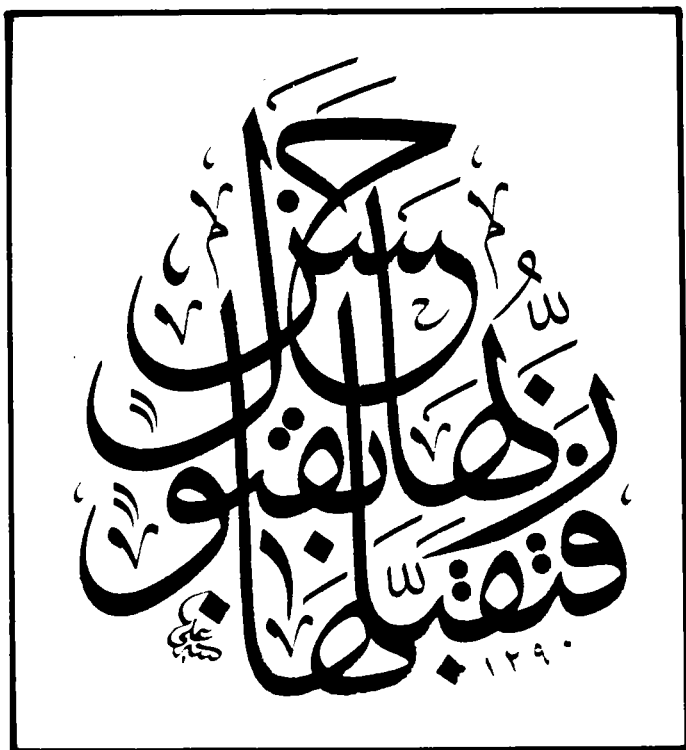 فَتَقَبَّلَهَا
رَبُّهَا بِقَبُولٍ
حَسَنٍ
علي
١٢٩٠